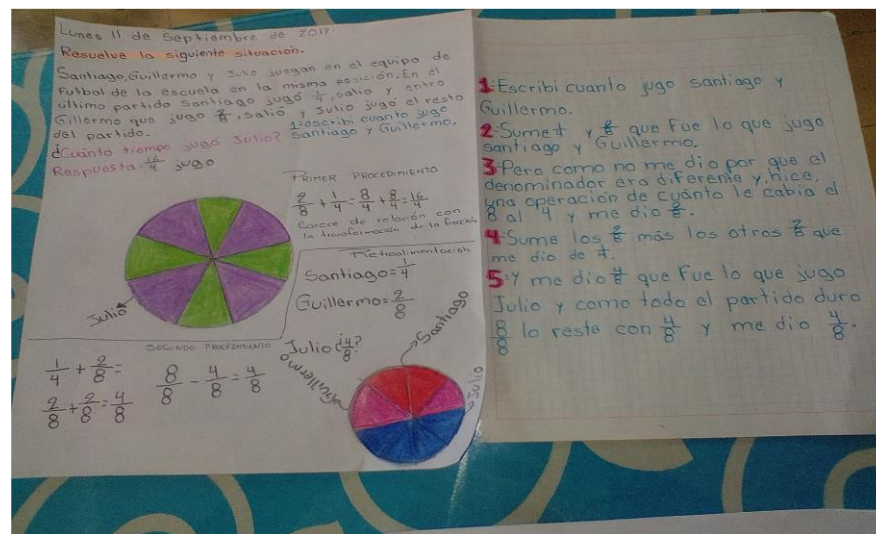 Lunes 11 de Septiembre de 2017.
Resuelve la siguiente situación.
Santiago, Guillermo y Julio juegan en el equipo de
Futbol de la escuela en la misma posición. En el
último partido Santiago jugó 1/4, salio y entro
Gillermo que jugo 2/8, salió y Julio jugó el resto
del partido.
¿Cuánto tiempo jugó Julio?
1-escribi cuanto jugo
Santiago y Guillermo.
Respuesta = 16/4 jugo
PRIMER PROCEDIMIENTO
2/8 + 1/4 = 8/4 + 8/4 = 16/4
Carece de relación con
la transformación de la fracción
Julio
Retroalimentación
Santiago = 1/4
Guillermo = 2/8
Julio ¿4/8?
SEGUNDO PROCEDIMIENTO
1/4 + 2/8 =
2/8 + 2/8 = 4/8
8/8 - 4/8 = 4/8
Santiago
Guillermo
Julio
1: Escribi cuanto jugo santiago y
Guillermo.
2: Sume y 2/8 que fue lo que jugo
santiago y Guillermo.
3: Pero como no me dio por que el
denominador era diferente y, hice,
una operación de cuánto le cabia el
8 al 4 y me dio 2/8.
4: Sume los 2/8 más los otros 2/8 que
me dio de
5: Y me dio 4/8 que fue lo que jugo
Julio y como todo el partido duro
8/8 lo reste con 4/8 y me dio 4/8.